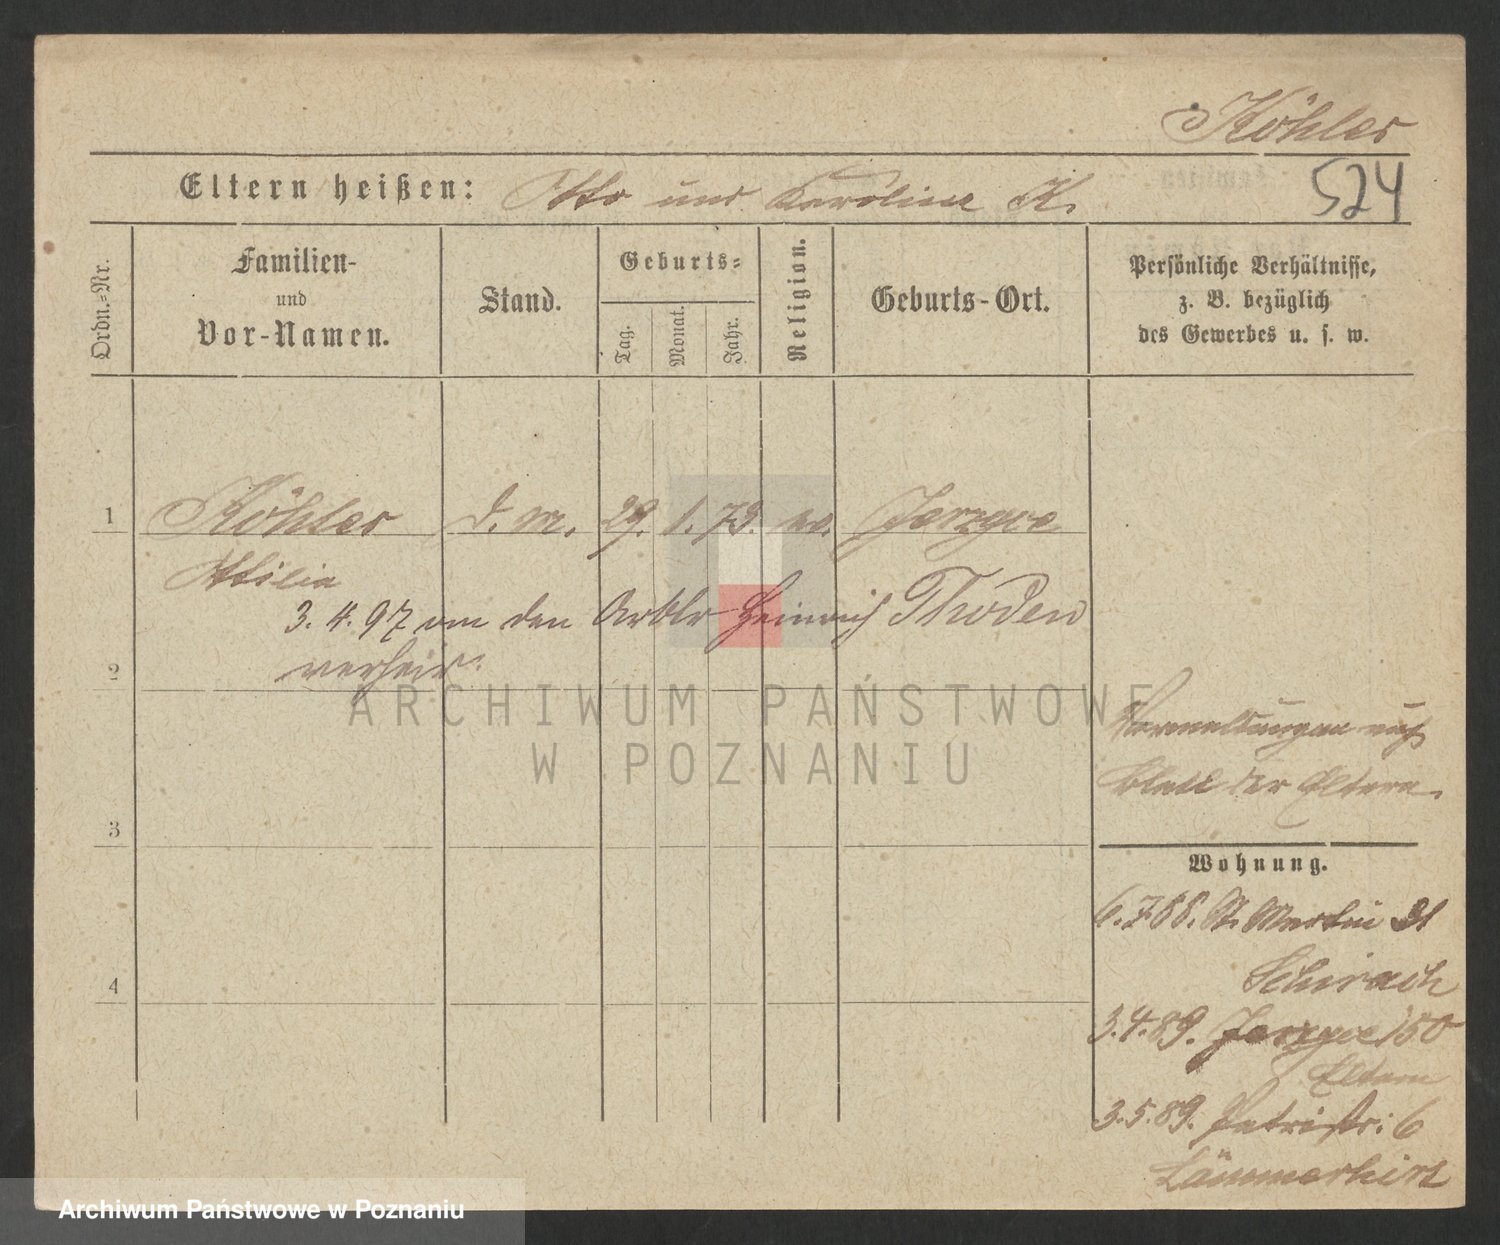 Köhler
Eltern heißen: Otto und Karoline K.
524
Ordn.=Nr.
Familien-
und
Vor-Namen.
Stand.
Geburts=
Tag.
Monat.
Jahr.
Religion.
Geburts-Ort.
Persönliche Verhältnisse,
z. B. bezüglich
des Gewerbes u. s. w.
1
Köhler
d. m. 29. 1. 73. ev. Jerzyce
Ottilie
3. 4. 97 an den Arbtr Heinrich Thoden
verheir.
2
3
4
ARCHIWUM PAŃSTWOWE
W POZNANIU
Vermeldungen auf
Blatt der Eltern.
Wohnung.
6.7.88. St. Martin 31
Schirach
3.4.89. Jerzyce 150
Eltern
3.5.89. Petristr: 6
Lämmerhirt
Archiwum Państwowe w Poznaniu